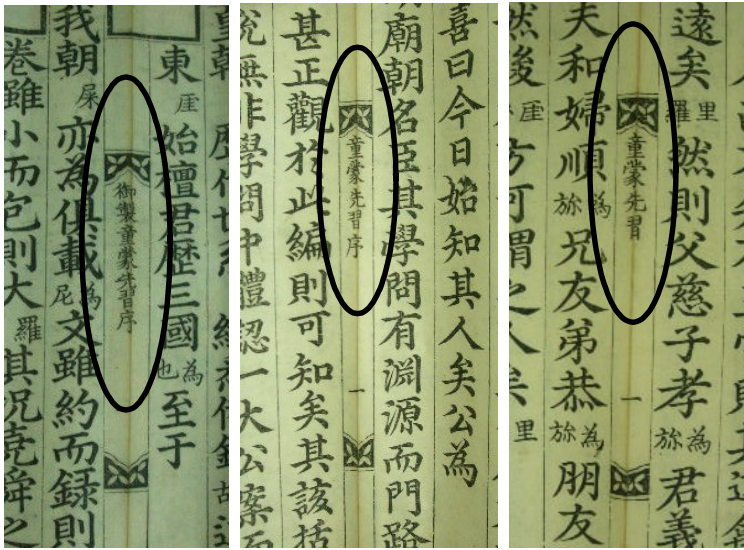 東厓始檀君歷三國為也至于
御製童蒙先習序
我朝屎亦為俱載為尼文雖約而録則
卷雖小而包則大羅其況堯舜之
喜曰今日始知其人矣公為
廟朝名臣其學問有淵源而門路
童蒙先習序
一
甚正觀於此編則可知矣其該括
無非學問中體認一大公案而
遠矣里羅然則父慈子孝為旀君義
童蒙先習
一
夫和婦順為旀兄友弟恭為旀朋友
然後厓方可謂之人矣里